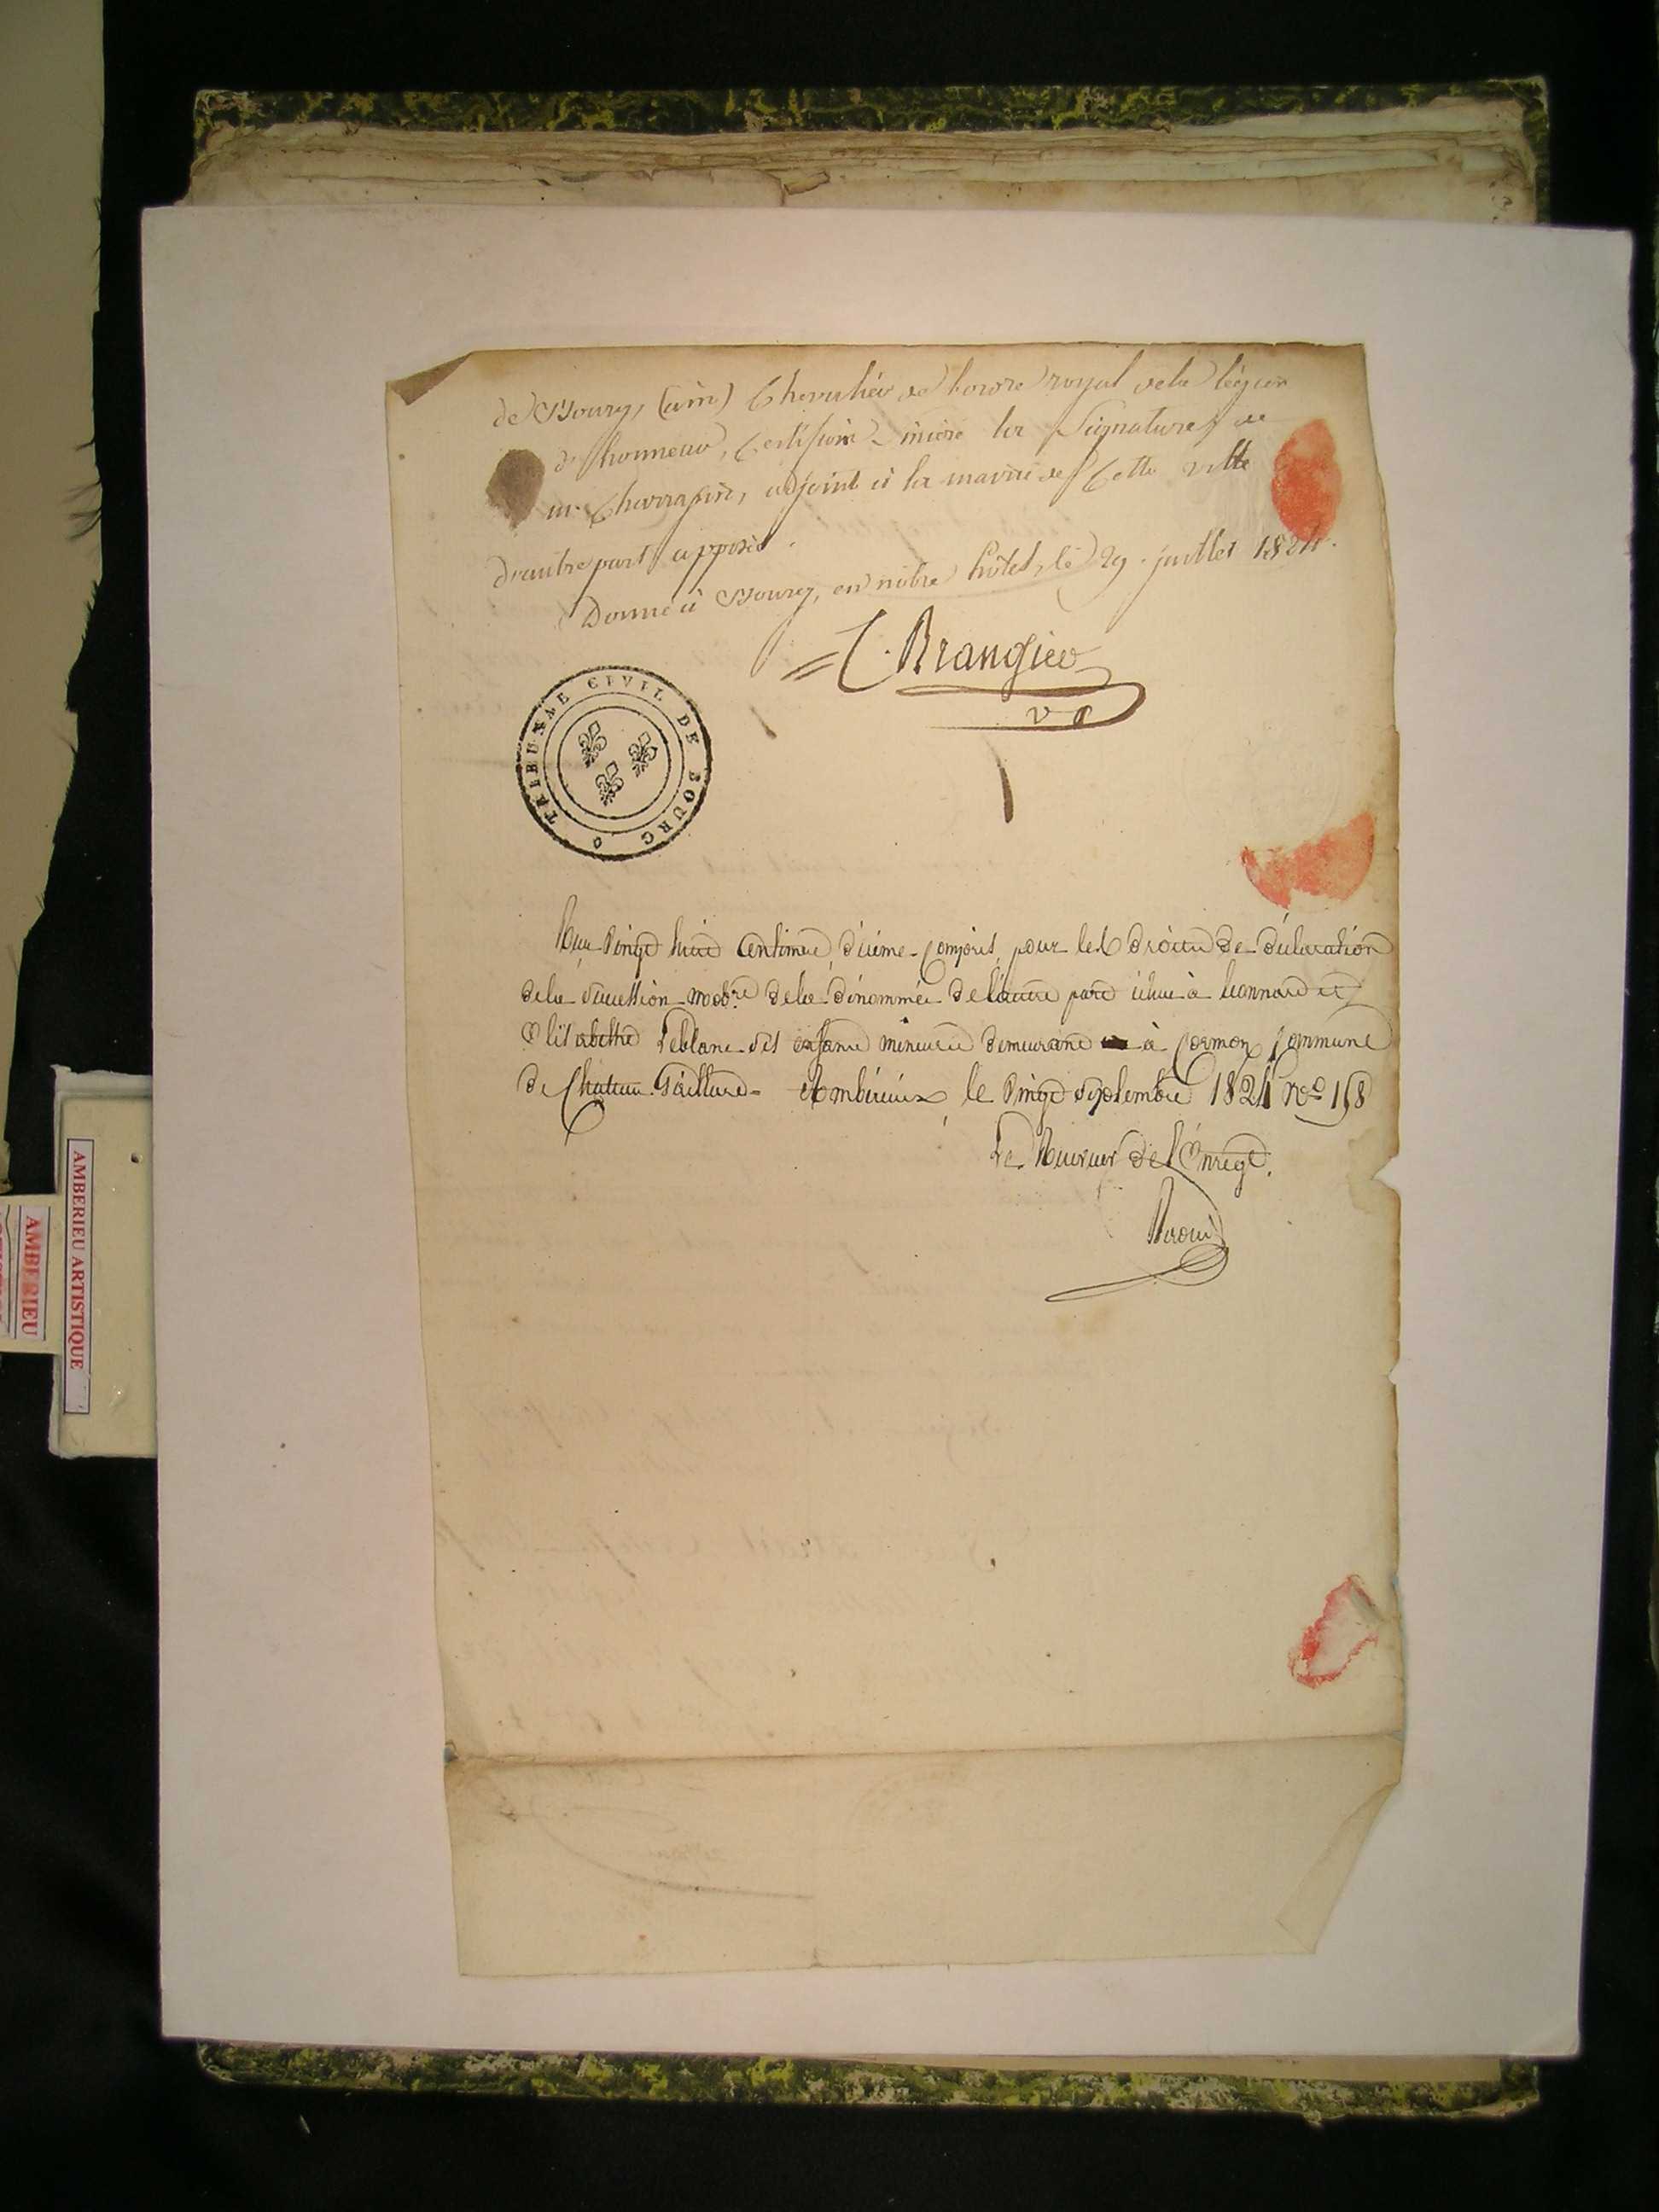 de Bourg, (ain) Chevalier de l'ordre royal de la légion
d'honneur, Certifions sincère la Signature de
mr. Charrassin, adjoint à la mairie de Cette ville
d'autre part apposée.
Donné à Bourg, en notre hôtel, le 29. juillet 1824.
C. Brangier
v p
TRIBUNAL CIVIL DE BOURG
Reçu vingt huit centimes, dixième compris, pour les droits de déclaration
de la succession mobre. de la dénommée de l'autre part échue à léonnard et
Elisabethe Leblanc ses enfans mineurs demeurant à cormoz commune
de Chateau Gaillard. Ambérieux, le vingt septembre 1824 no 158
Le Receveur de l'Enregt.
AMBERIEU ARTISTIQUE
AMBERIEU